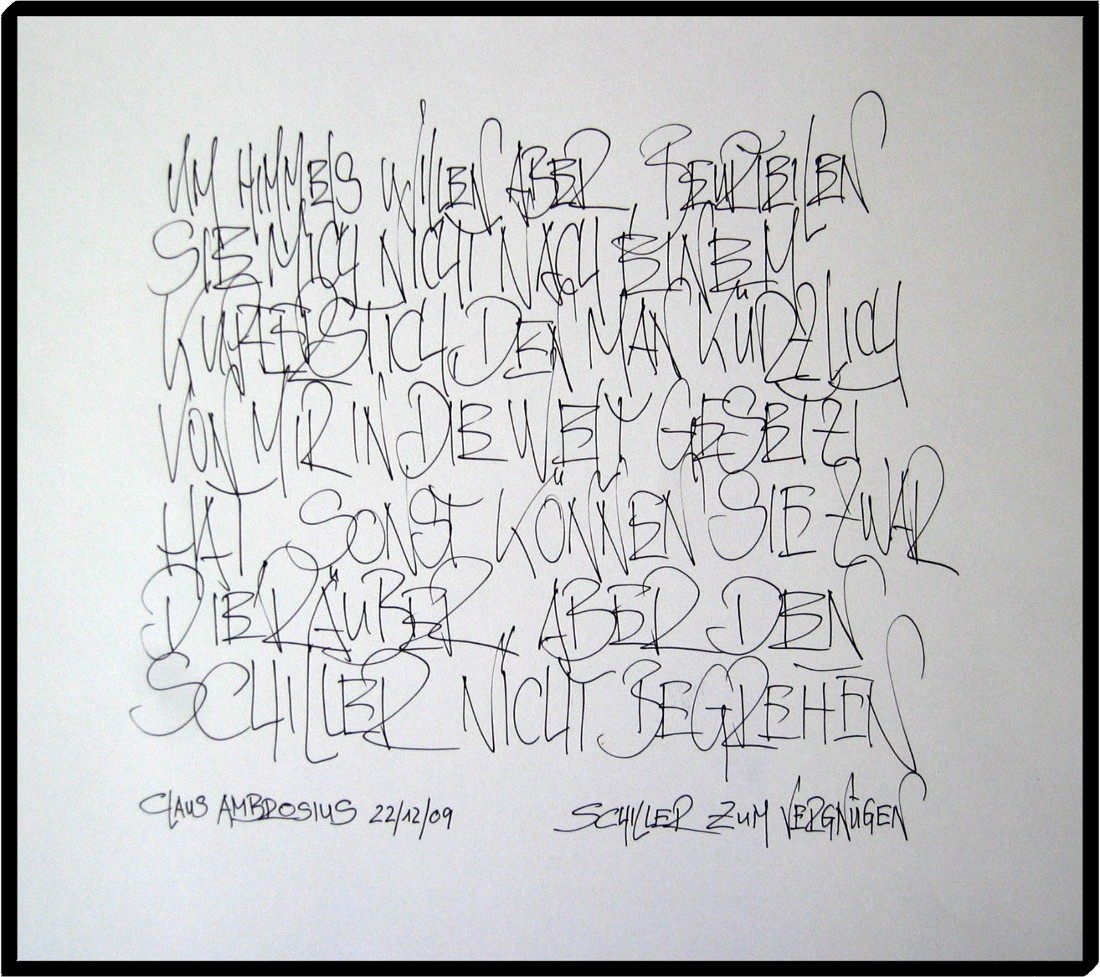 UM HIMMELS WILLEN ABER BEURTEILEN
SIE MICH NICHT NACH EINEM
KUPFERSTICH DEN MAN KÜRZLICH
VON MIR IN DIE WELT GESETZT
HAT SONST KÖNNEN SIE ZWAR
DIE RÄUBER ABER DEN
SCHILLER NICHT BEGREHEN
CLAUS AMBROSIUS 22/12/09 SCHILLER ZUM VERGNÜGEN